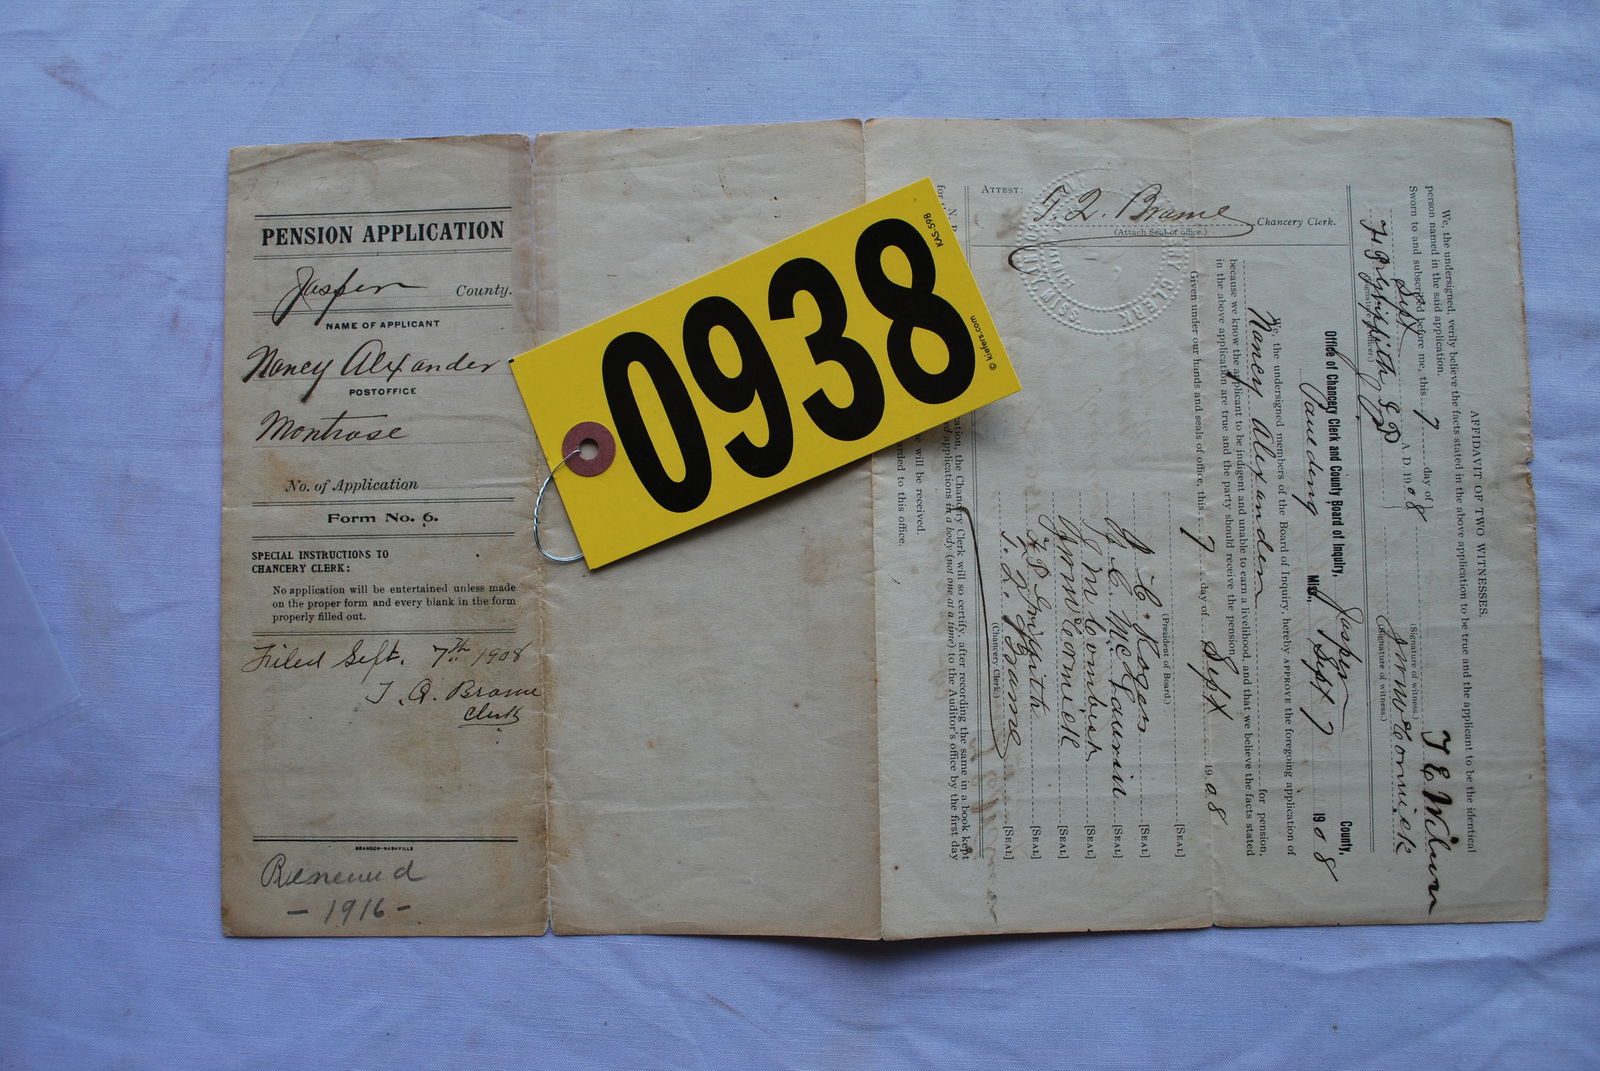 PENSION APPLICATION
Jasper County.
NAME OF APPLICANT
Nancy Alexander
POSTOFFICE
Montrose
No. of Application
Form No. 6.
SPECIAL INSTRUCTIONS TO
CHANCERY CLERK:
No application will be entertained unless made
on the proper form and every blank in the form
properly filled out.
Filed Sept. 7th 1908
T. Q. Brame
Clerk
BRANDON-NASHVILLE
Renewed
- 1916 -
0938
KAS-598
© kiefers.com
AFFIDAVIT OF TWO WITNESSES.
We, the undersigned, verily believe the facts stated in the above application to be true and the applicant to be the identical
person named in the said application.
T. E. Wilson
(Signature of witness.)
Sworn to and subscribed before me, this 7 day of
J M McCormick
(Signature of witness.)
Sept A. D. 1908
F. D. Griffith J P
(Signature of officer.)
Office of Chancery Clerk and County Board of Inquiry, Jasper County,
Paulding Miss., Sept 7 1908
We, the undersigned members of the Board of Inquiry, hereby APPROVE the foregoing application of
Nancy Alexander for pension,
because we know the applicant to be indigent and unable to earn a livelihood, and that we believe the facts stated
in the above application are true and the party should receive the pension.
Given under our hands and seals of office, this 7 day of Sept 1908
[SEAL]
(President of Board.)
[SEAL]
McLaurin [SEAL]
[SEAL]
J M McCormick [SEAL]
F. D. Griffith [SEAL]
T. Q. Brame [SEAL]
(Chancery Clerk.)
ATTEST:
T. Q. Brame Chancery Clerk.
(Attach Seal of office.)
CHANCERY CLERK
the Chancery Clerk will so certify, after recording the same in a book kept
applications in a body (not one at a time) to the Auditor's office by the first day
will be received.
to this office.